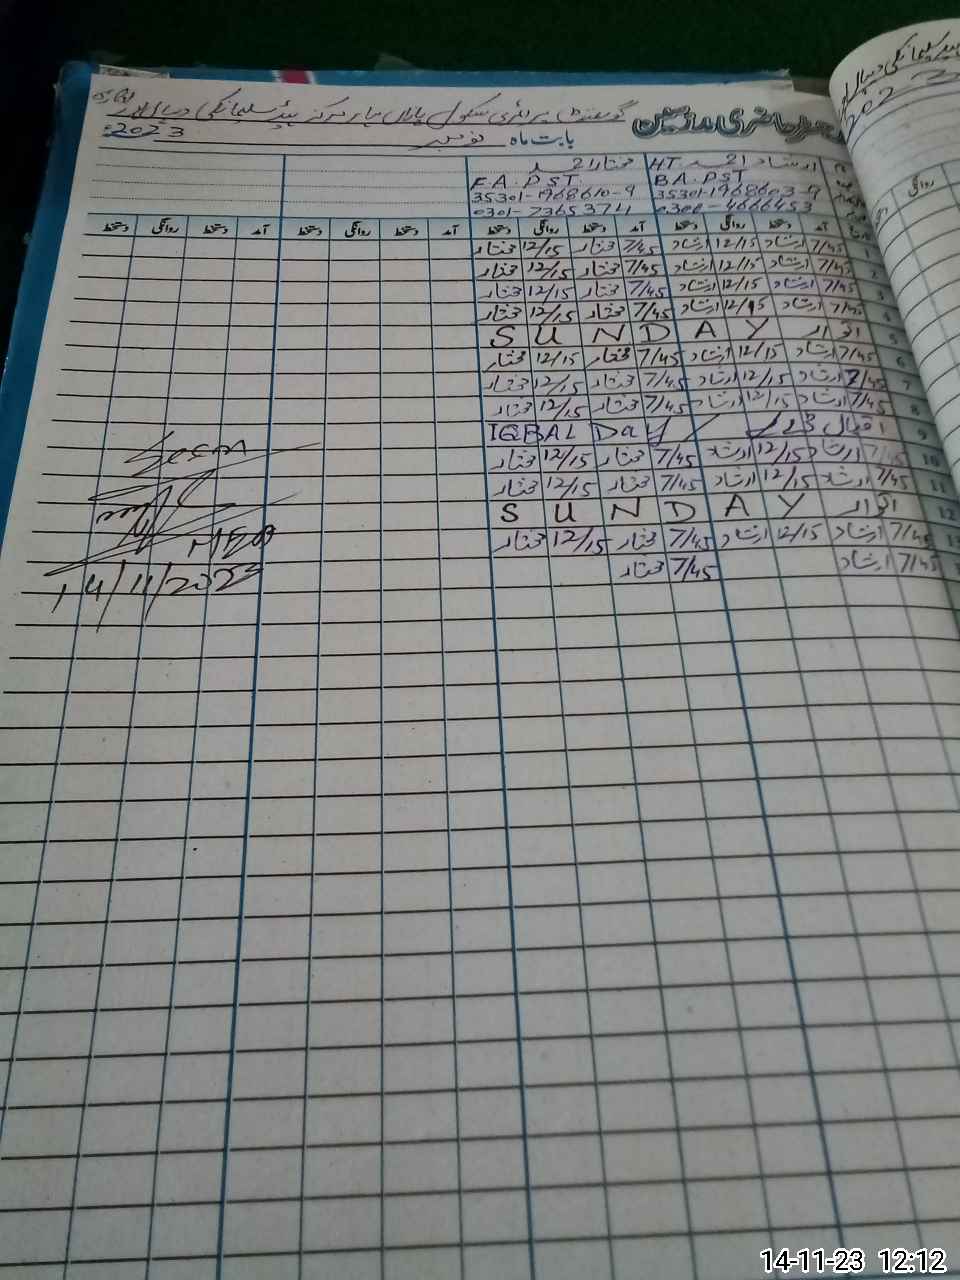 رجسٹر حاضری ملازمین
گورنمنٹ پرائمری سکول
بابت ماہ نومبر 2023
ارشاد احمد HT مختار احمد
BA.PST F.A.PST
35301-1968603-9 35301-1968610-9
0300-4666453 0301-7365374
آمد دستخط روانگی دستخط آمد دستخط روانگی دستخط آمد دستخط روانگی دستخط آمد دستخط روانگی دستخط
1 7/45 ارشاد 12/15 ارشاد 7/45 مختار 12/15 مختار
2 7/45 ارشاد 12/15 ارشاد 7/45 مختار 12/15 مختار
3 7/45 ارشاد 12/15 ارشاد 7/45 مختار 12/15 مختار
4 7/45 ارشاد 12/15 ارشاد 7/45 مختار 12/15 مختار
5 اتوار SUNDAY
6 7/45 ارشاد 12/15 ارشاد 7/45 مختار 12/15 مختار
7 7/45 ارشاد 12/15 ارشاد 7/45 مختار 12/15 مختار
8 7/45 ارشاد 12/15 ارشاد 7/45 مختار 12/15 مختار
9 اقبال ڈے IQBAL Day
10 7/45 ارشاد 12/15 ارشاد 7/45 مختار 12/15 مختار
11 7/45 ارشاد 12/15 ارشاد 7/45 مختار 12/15 مختار
12 اتوار SUNDAY
13 7/45 ارشاد 12/15 ارشاد 7/45 مختار 12/15 مختار
7/45 ارشاد 7/45 مختار
Seen
14/11/2023
2023
روانگی
14-11-23 12:12